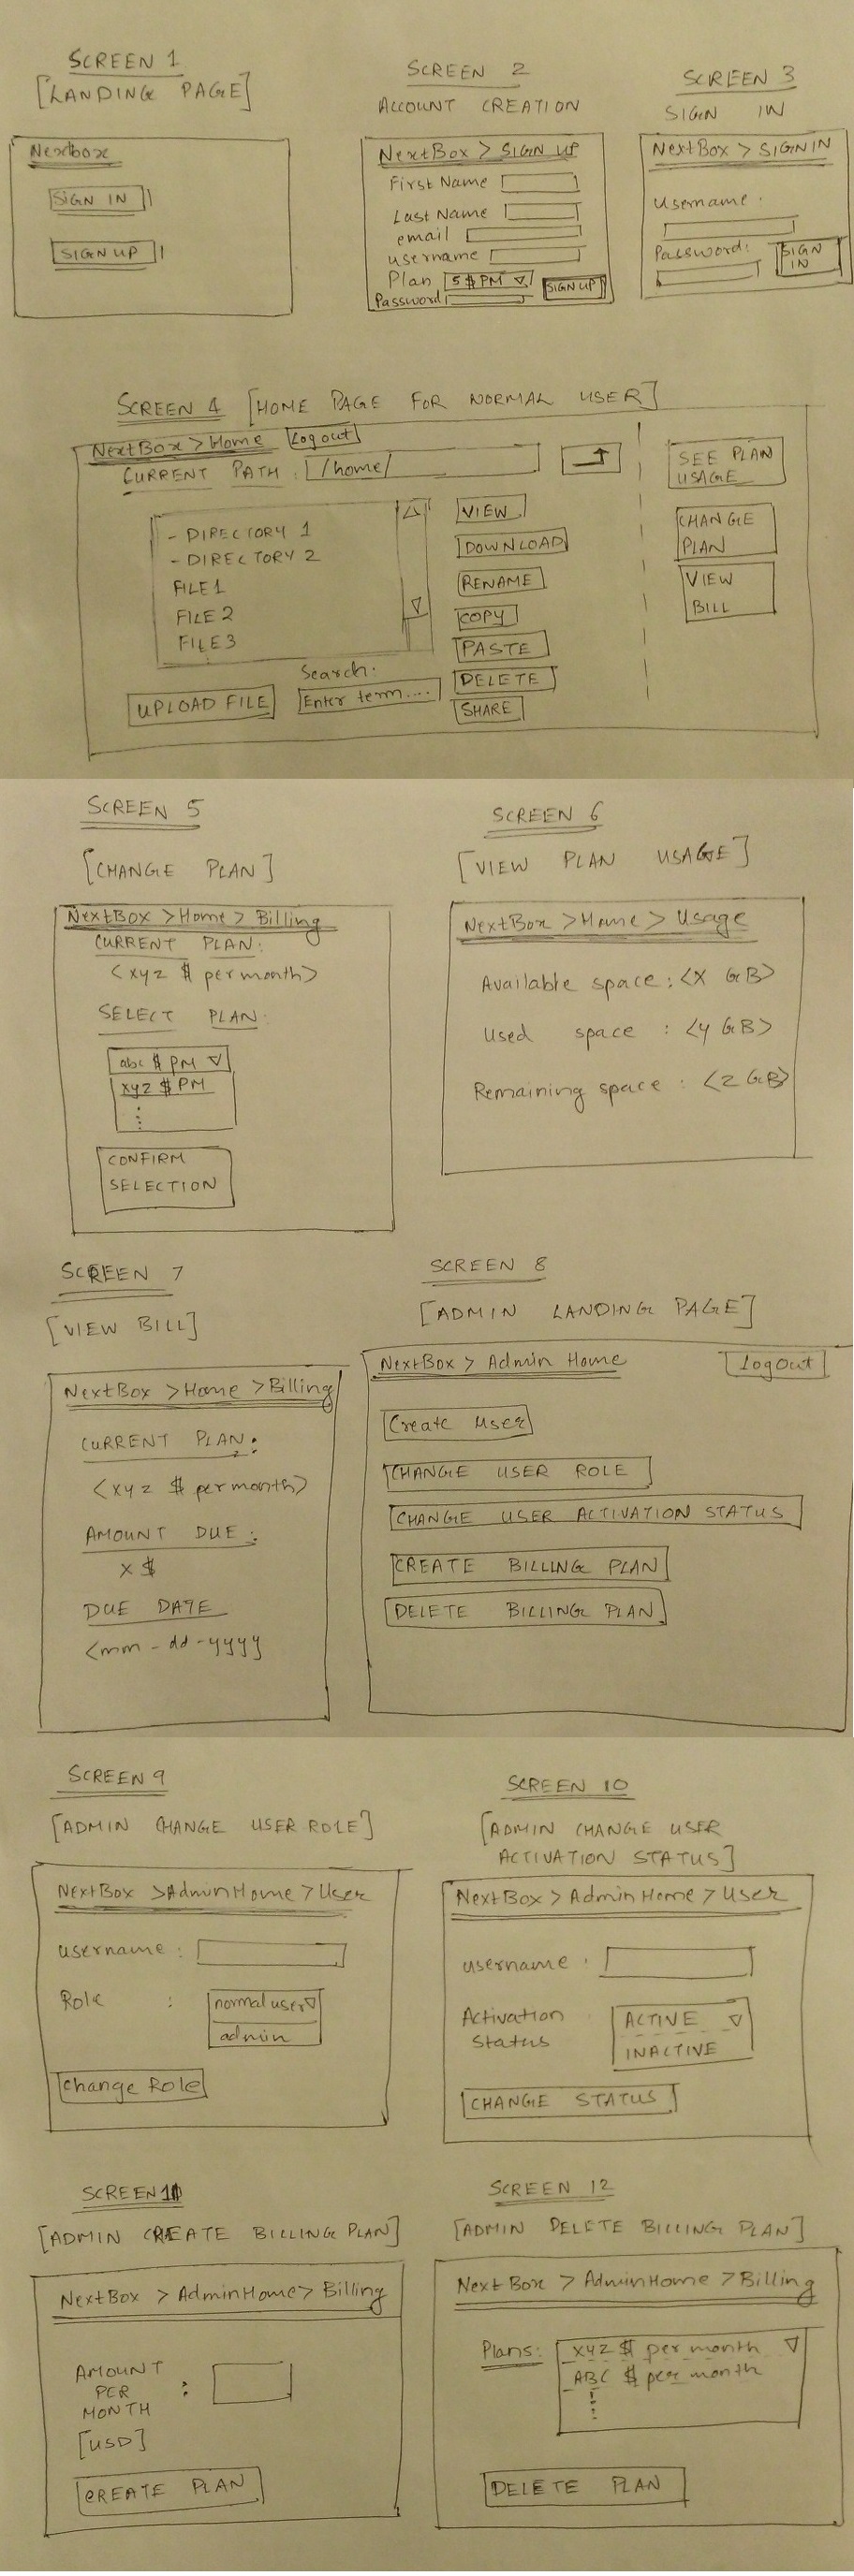 SCREEN 1
[LANDING PAGE]
Nextbox
SIGN IN
SIGN UP
SCREEN 2
ACCOUNT CREATION
NextBox > SIGN UP
First Name
Last Name
email
username
Plan 5 $ PM
Password
SIGN UP
SCREEN 3
SIGN IN
NextBox > SIGN IN
Username
Password:
SIGN
IN
SCREEN 4 [HOME PAGE FOR NORMAL USER]
NextBox > Home Logout
CURRENT PATH : /home/
- DIRECTORY 1
- DIRECTORY 2
FILE1
FILE 2
FILE3
Search:
UPLOAD FILE
Enter term....
VIEW
DOWNLOAD
RENAME
COPY
PASTE
DELETE
SHARE
SEE PLAN
USAGE
CHANGE
PLAN
VIEW
BILL
SCREEN 5
[CHANGE PLAN]
NextBox > Home > Billing
CURRENT PLAN:
<xyz $ per month>
SELECT PLAN:
abc $ PM
xyz $ PM
CONFIRM
SELECTION
SCREEN 6
[VIEW PLAN USAGE]
NextBox > Home > Usage
Available space : <X GB>
Used space : <Y GB>
Remaining space : <Z GB>
SCREEN 7
[VIEW BILL]
NextBox > Home > Billing
CURRENT PLAN:
<xyz $ per month>
AMOUNT DUE :
x $
DUE DATE
<mm - dd - yyyy
SCREEN 8
[ADMIN LANDING PAGE]
NextBox > Admin Home Logout
Create User
CHANGE USER ROLE
CHANGE USER ACTIVATION STATUS
CREATE BILLING PLAN
DELETE BILLING PLAN
SCREEN 9
[ADMIN CHANGE USER ROLE]
NextBox > AdminHome > User
username :
Role : normal user
admin
Change Role
SCREEN 10
[ADMIN CHANGE USER
ACTIVATION STATUS]
NextBox > AdminHome > User
username :
Activation
Status
ACTIVE
INACTIVE
CHANGE STATUS
SCREEN 11
[ADMIN CREATE BILLING PLAN]
NextBox > AdminHome > Billing
AMOUNT
PER :
MONTH
[USD]
CREATE PLAN
SCREEN 12
[ADMIN DELETE BILLING PLAN]
NextBox > AdminHome > Billing
Plans: xyz $ per month
ABC $ per month
DELETE PLAN